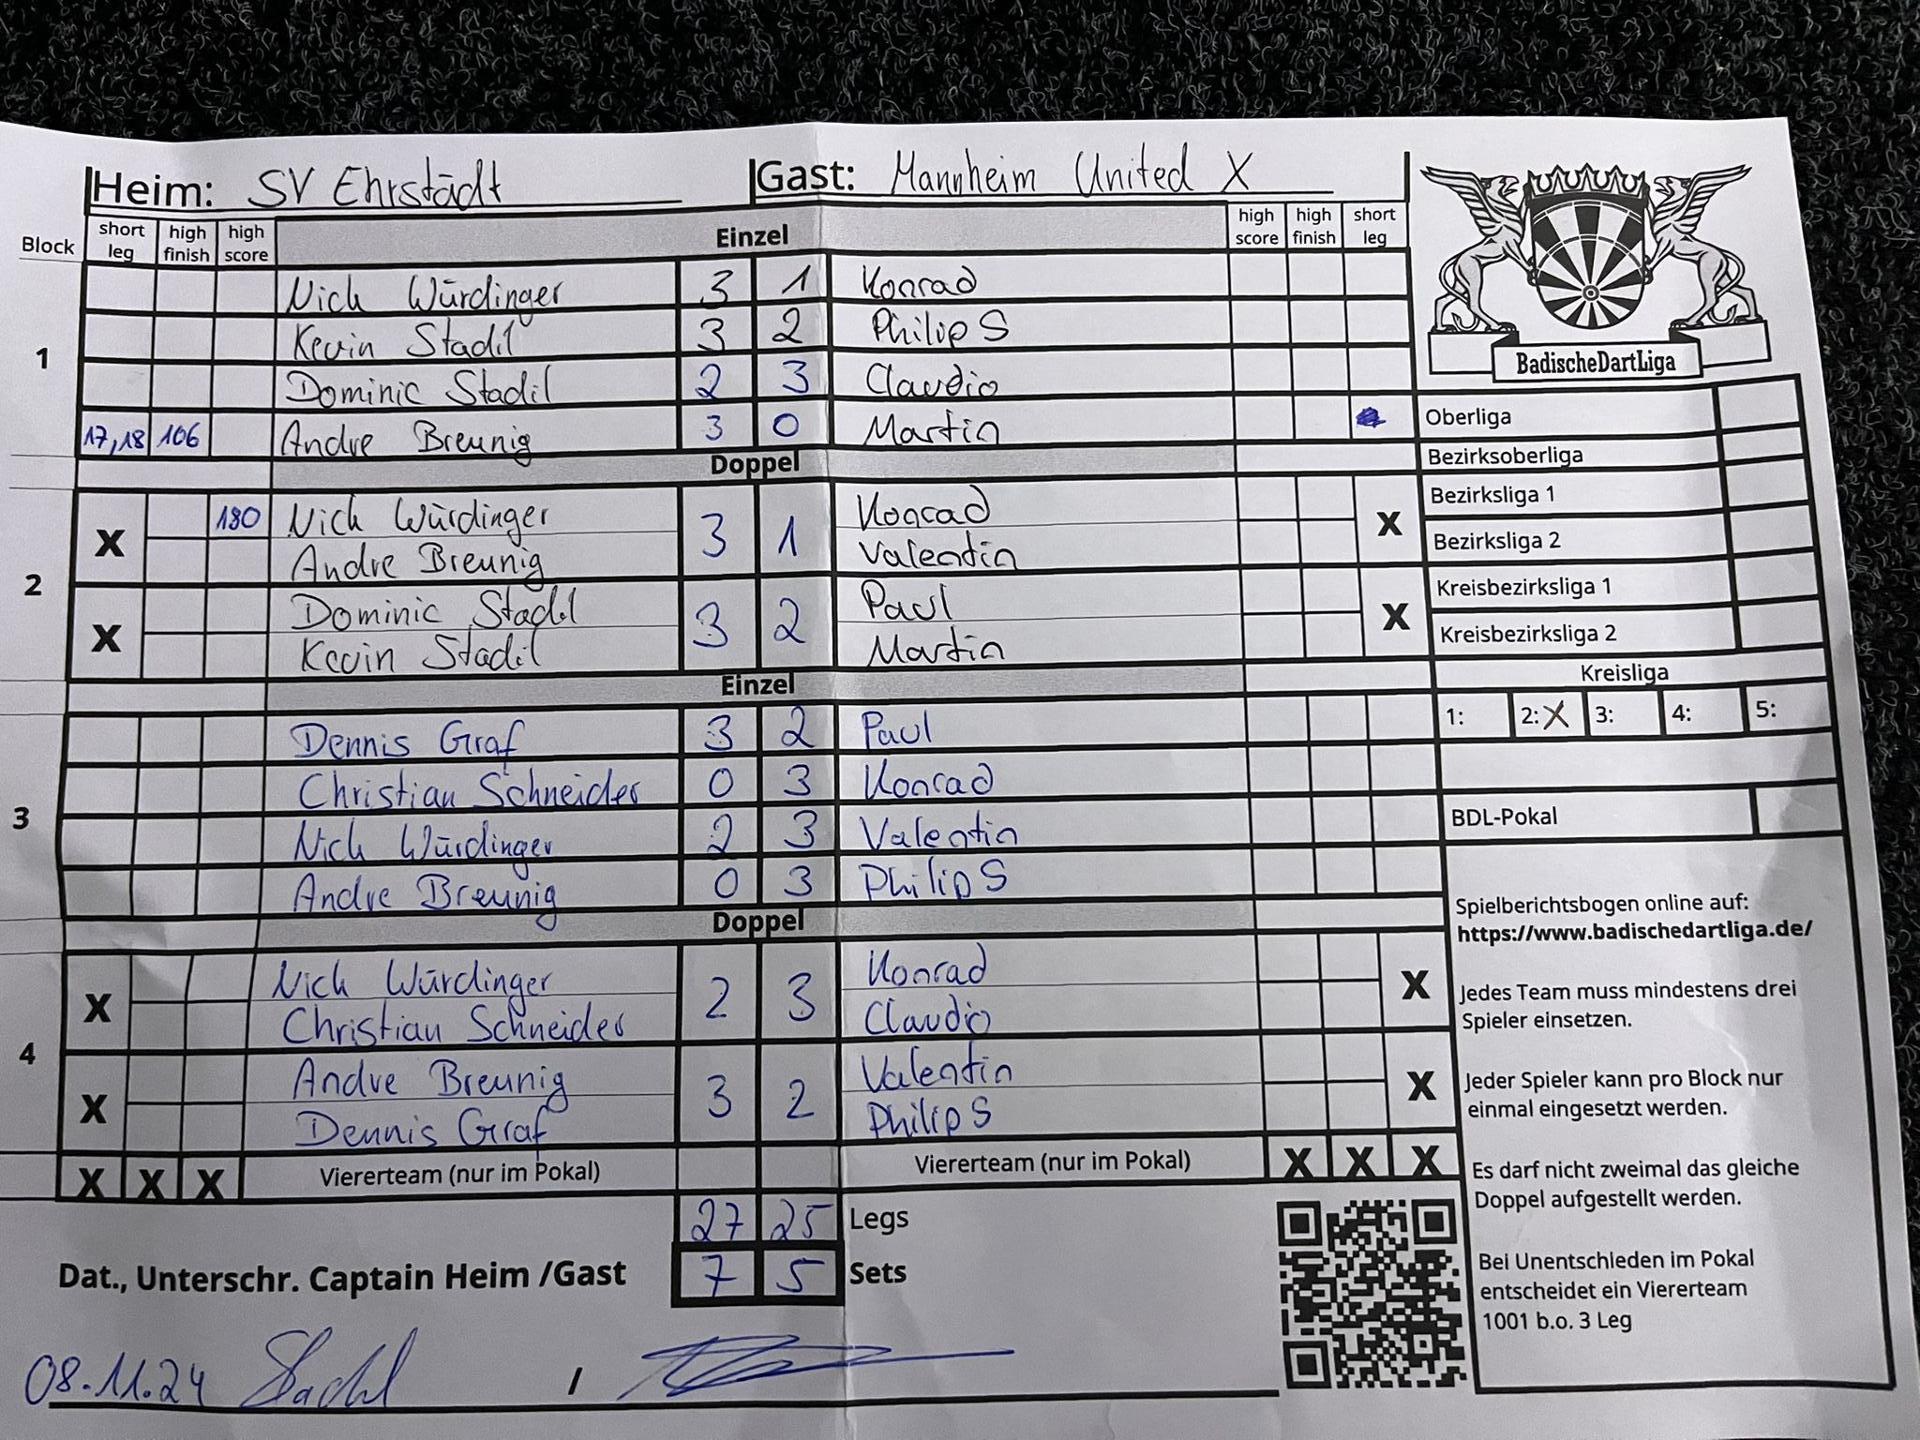 Heim: SV Ehrstädt Gast: Mannheim United X
Block short leg high finish high score Einzel high score high finish short leg
1
Nick Würdinger 3 1 Konrad
Kevin Stadil 3 2 Philip S
Dominic Stadil 2 3 Claudio
17,18 106 Andre Breunig 3 0 Martin
Doppel
2
X 180 Nick Würdinger 3 1 Konrad X
Andre Breunig Valentin
X Dominic Stadil 3 2 Paul X
Kevin Stadil Martin
Einzel
3
Dennis Graf 3 2 Paul
Christian Schneider 0 3 Konrad
Nick Würdinger 2 3 Valentin
Andre Breunig 0 3 Philip S
Doppel
4
X Nick Würdinger 2 3 Konrad X
Christian Schneider Claudio
X Andre Breunig 3 2 Valentin X
Dennis Graf Philip S
X X X Viererteam (nur im Pokal) Viererteam (nur im Pokal) X X X
27 25 Legs
Dat., Unterschr. Captain Heim /Gast 7 5 Sets
08.11.24 /
BadischeDartLiga
Oberliga
Bezirksoberliga
Bezirksliga 1
Bezirksliga 2
Kreisbezirksliga 1
Kreisbezirksliga 2
Kreisliga
1: 2: X 3: 4: 5:
BDL-Pokal
Spielberichtsbogen online auf:
https://www.badischedartliga.de/
Jedes Team muss mindestens drei
Spieler einsetzen.
Jeder Spieler kann pro Block nur
einmal eingesetzt werden.
Es darf nicht zweimal das gleiche
Doppel aufgestellt werden.
Bei Unentschieden im Pokal
entscheidet ein Viererteam
1001 b.o. 3 Leg